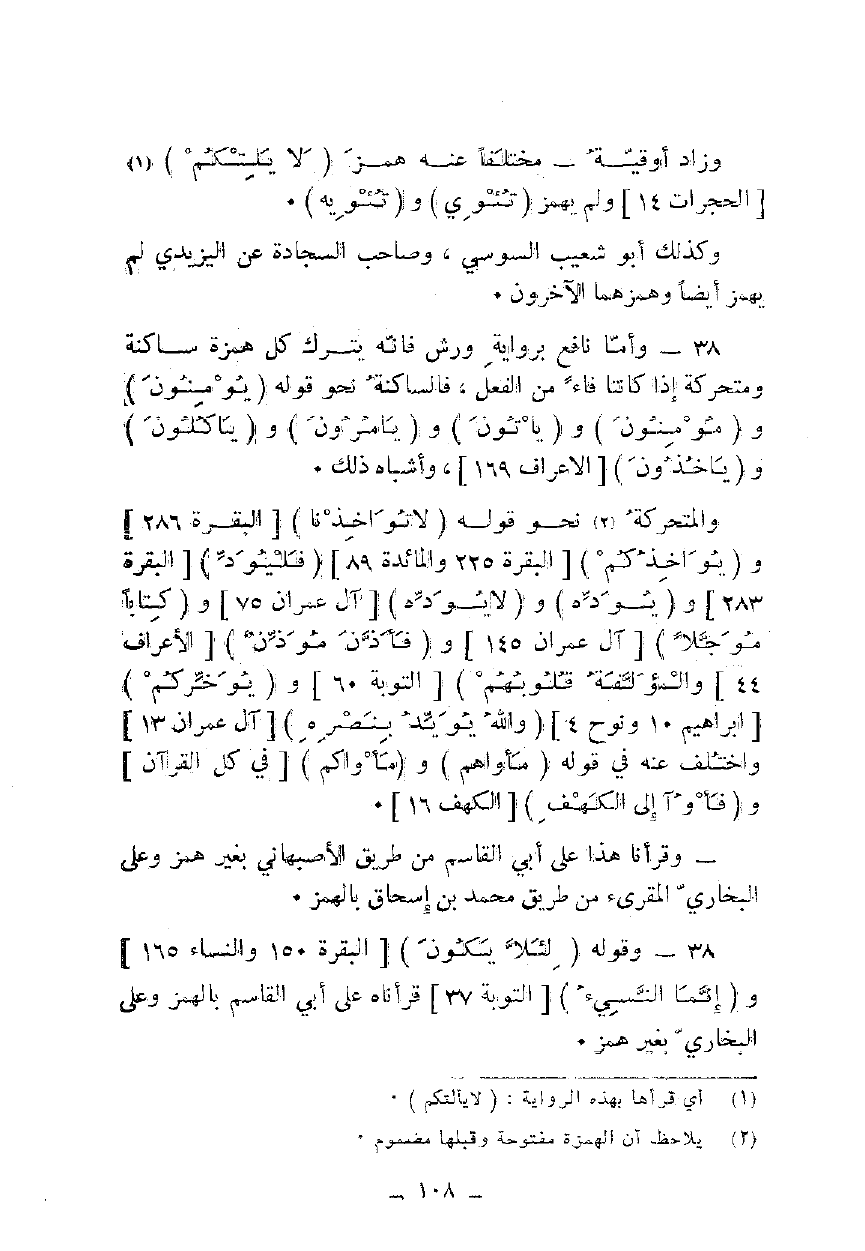 وزاد أوقيّة ــ مختلفاً عنه همزَ ( لَا يَلِتْكُمْ ) (١)
[ الحجرات ١٤ ] ولم يهمز ( تُئْوِي ) و ( تُئْوِيه ) ٠
وكذلك أبو شعيب السوسي ، وصاحب السجادة عن اليزيدي لم
يهمز أيضاً وهمزهما الآخرون ٠
٣٨ ــ وأمّا نافع بروايةِ ورش فانّه يترك كل همزة ساكنة
ومتحركة إذا كانتا فاءً من الفعل ، فالساكنةُ نحو قوله ( يُوْمِنُونَ )
و ( مُوْمِنُونَ ) و ( ياْتُونَ ) و ( يَامُرُونَ ) و ( يَاكُلُونَ )
و ( يَاخُذُونَ ) [ الاعراف ١٦٩ ] ، وأشباه ذلك ٠
والمتحركةُ (٢) نحو قوله ( لاتُوَاخِذْنا ) [ البقرة ٢٨٦ ]
و ( يُوَاخِذُكُمْ ) [ البقرة ٢٢٥ والمائدة ٨٩ ] ( فَلْيُوَدِّ ) [ البقرة
٢٨٣ ] و ( يُوَدِّه ) و ( لايُوَدِّه ) [ آل عمران ٧٥ ] و ( كِتاباً
مُوَجَّلاً ) [ آل عمران ١٤٥ ] و ( فَأَذَّنَ مُوَذِّنٌ ) [ الأعراف
٤٤ ] والمُؤَلَّفَةُ قُلُوبُهُمْ ) [ التوبة ٦٠ ] و ( يُوَخِّرَكُمْ )
[ ابراهيم ١٠ ونوح ٤ ] ( واللهُ يُوَيِّدُ بِنَصْرِهِ ) [ آل عمران ١٣ ]
واختُلف عنه في قوله ( مَأواهم ) و ( مَأْواكم ) [ في كل القرآن ]
و ( فَأْوُآ إلى الكَهْفِ ) [ الكهف ١٦ ] ٠
ــ وقرأنا هذا على أبي القاسم من طريق الأصبهاني بغير همز وعلى
البخاريّ المقرىء من طريق محمد بن إسحاق بالهمز ٠
٣٨ ــ وقوله ( لِئَلاَّ يَكُونَ ) [ البقرة ١٥٠ والنساء ١٦٥ ]
و ( إنَّمَا النَّسِيءُ ) [ التوبة ٣٧ ] قرأناه على أبي القاسم بالهمز وعلى
البخاريّ بغير همز ٠
(١) أي قرأها بهذه الرواية : ( لايألتكم ) ٠
(٢) يلاحظ أن الهمزة مفتوحة وقبلها مضموم ٠
ــ ١٠٨ ــ